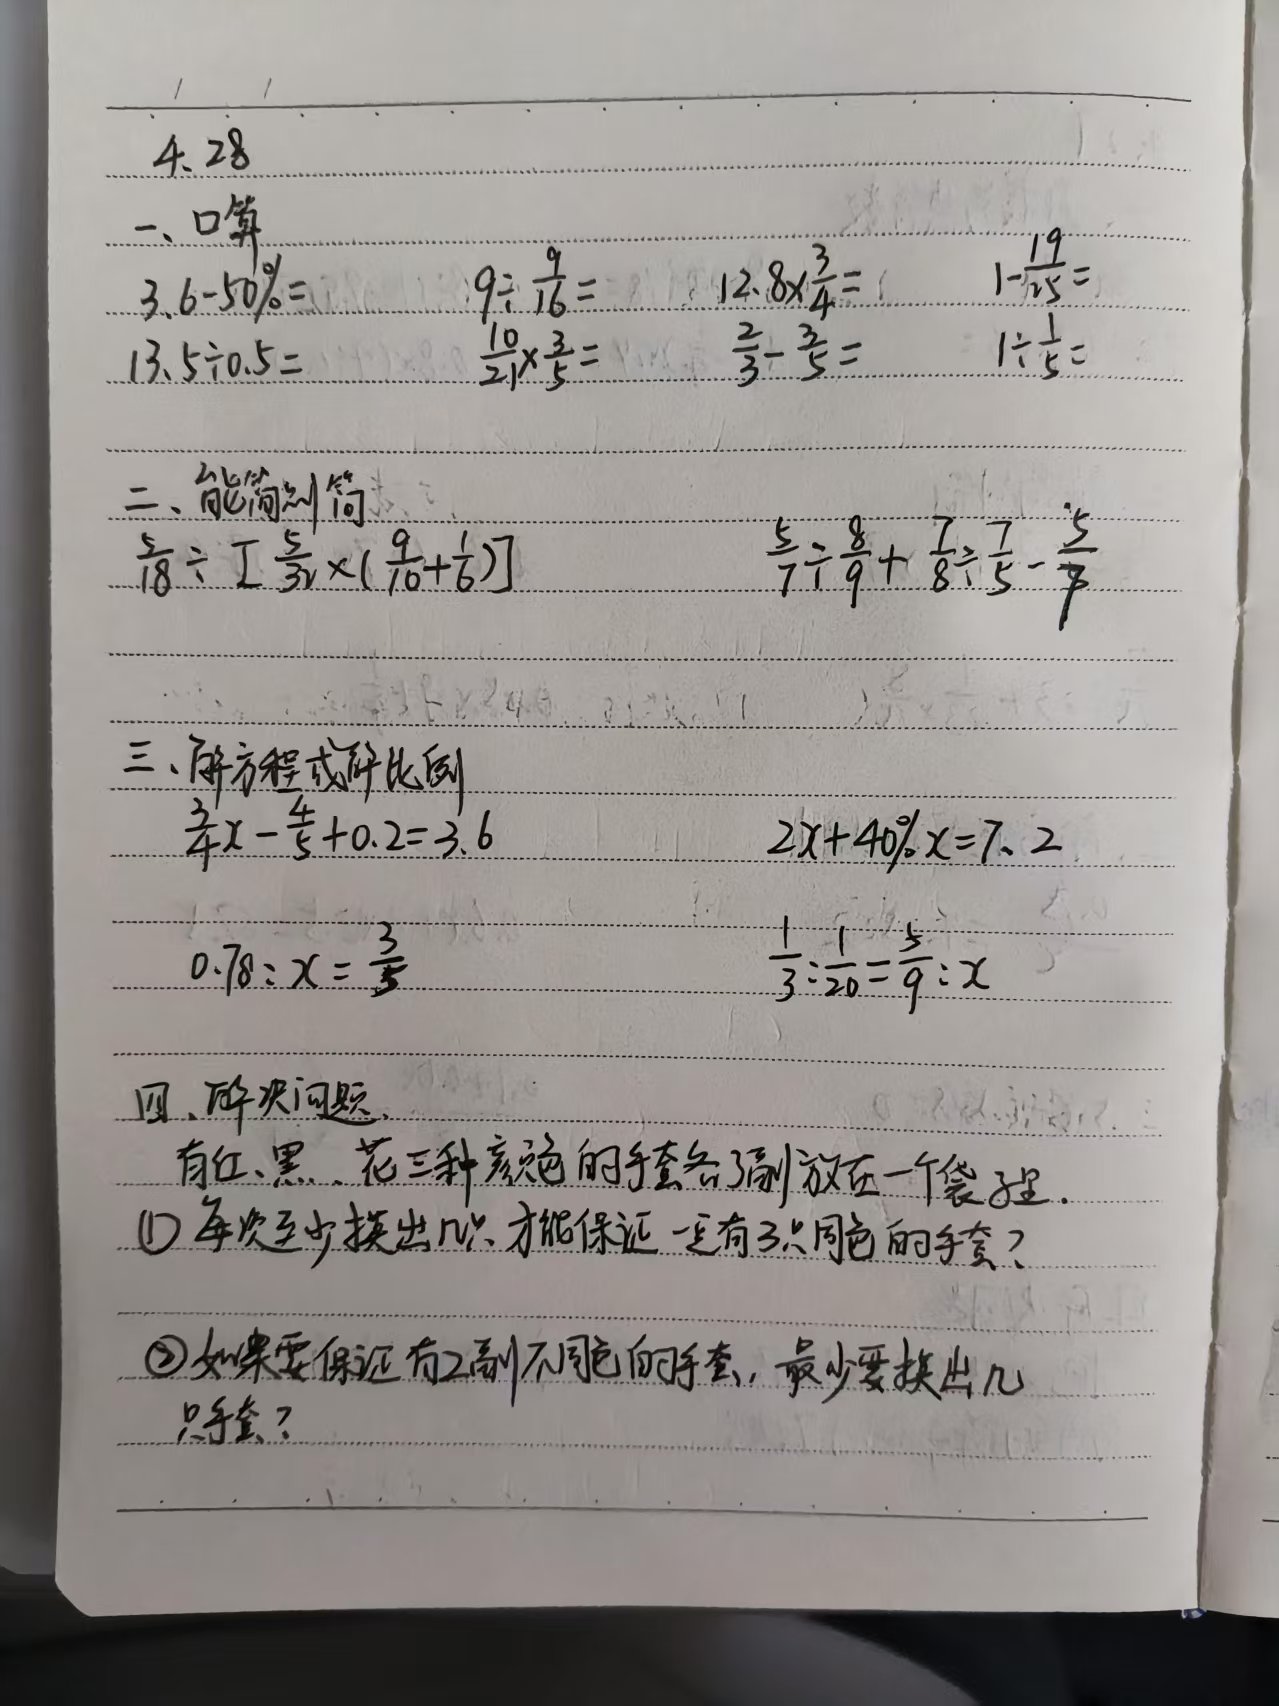 4.28
一、口算
3.6-50%= 9÷9/16= 12.8×3/4= 1-19/25=
13.5÷0.5= 10/21×3/5= 2/3-3/5= 1÷1/5=
二、能简则简
5/18÷[5/32×(9/10+1/6)] 5/7÷8/9+7/8÷7/5-5/7
三、解方程或解比例
3/4x-4/5+0.2=3.6 2x+40%x=7.2
0.78:x=3/5 1/3:1/20=5/9:x
四、解决问题.
有红、黑、花三种颜色的手套各3副放在一个袋子里.
① 每次至少摸出几只才能保证一定有3只同色的手套?
② 如果要保证有2副不同色的手套,最少要摸出几
只手套?